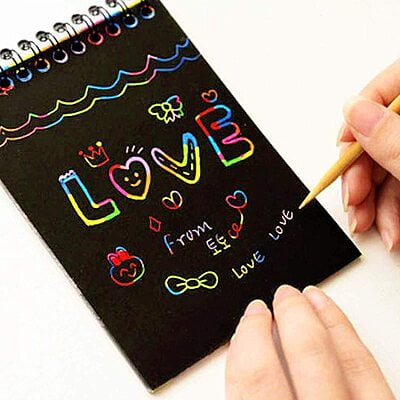 LOVE
From
토토ce
LOVE LOVE